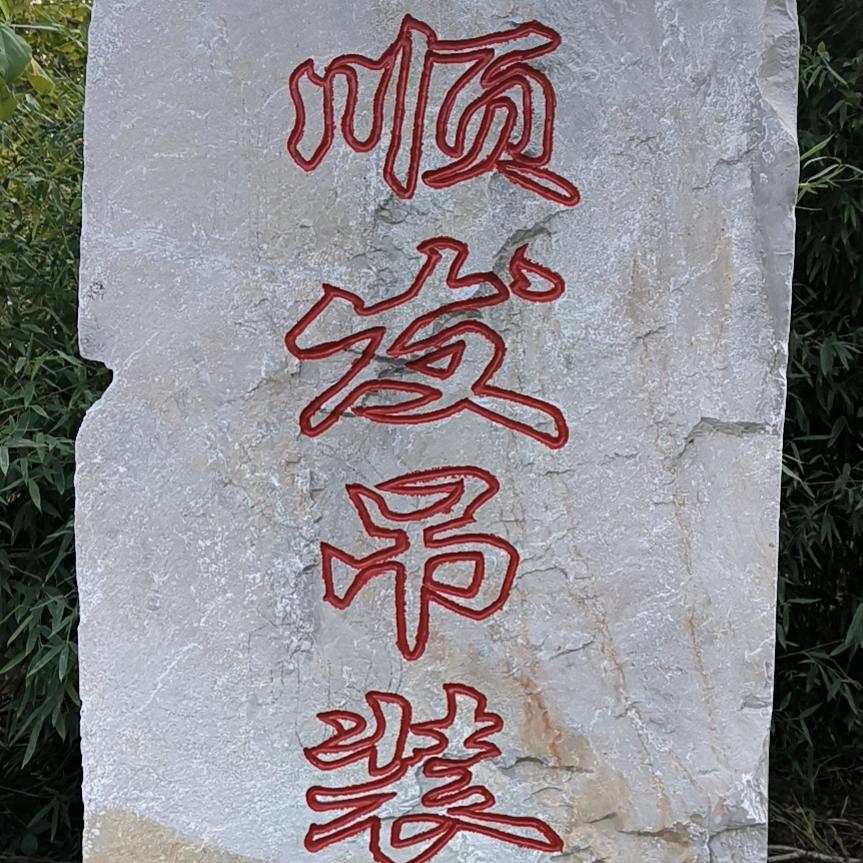 顺发吊装